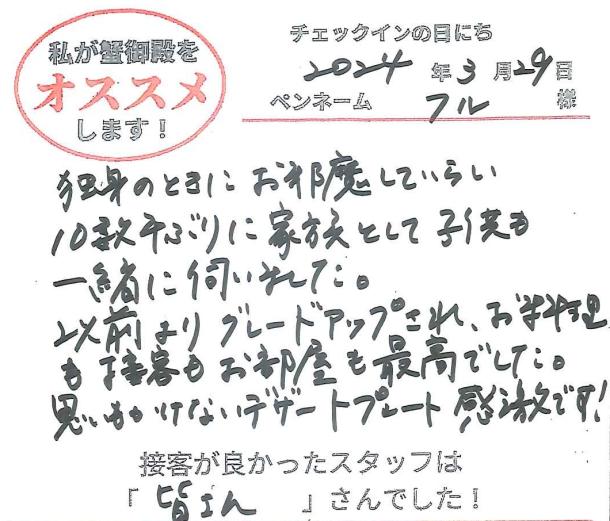 私が蟹御殿を
オススメ
します!
チェックインの日にち
2024年3月29日
ペンネーム フル 様
独身のときにお邪魔していらい
10数年ぶりに家族として子供も
一緒に伺いました。
以前よりグレードアップされ、お料理
も接客もお部屋も最高でした。
思いもかけないデザートプレート感激です!
接客が良かったスタッフは
「 皆さん 」さんでした!